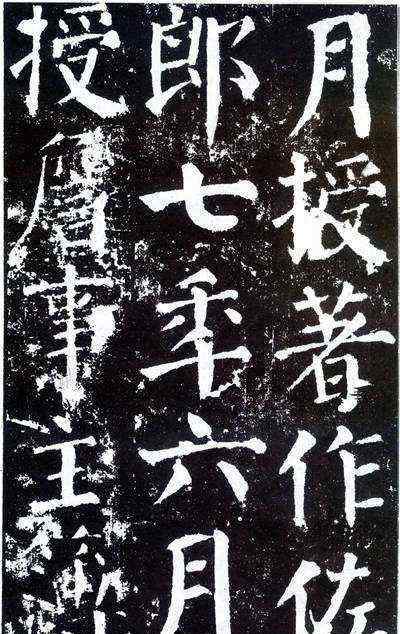 月授著作佐
郎七年六月
授詹事主